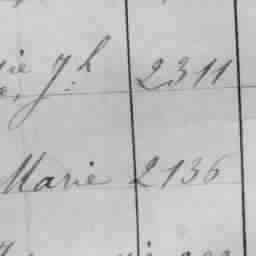 Jh 2311
Marie 2136